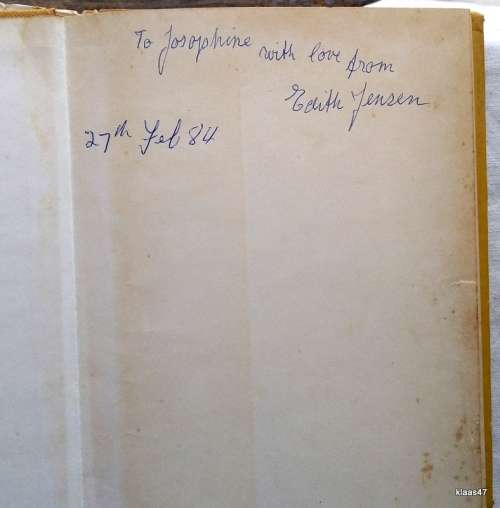 To Josophine with love from
Edith Jensen
27th Feb 84
klaas47